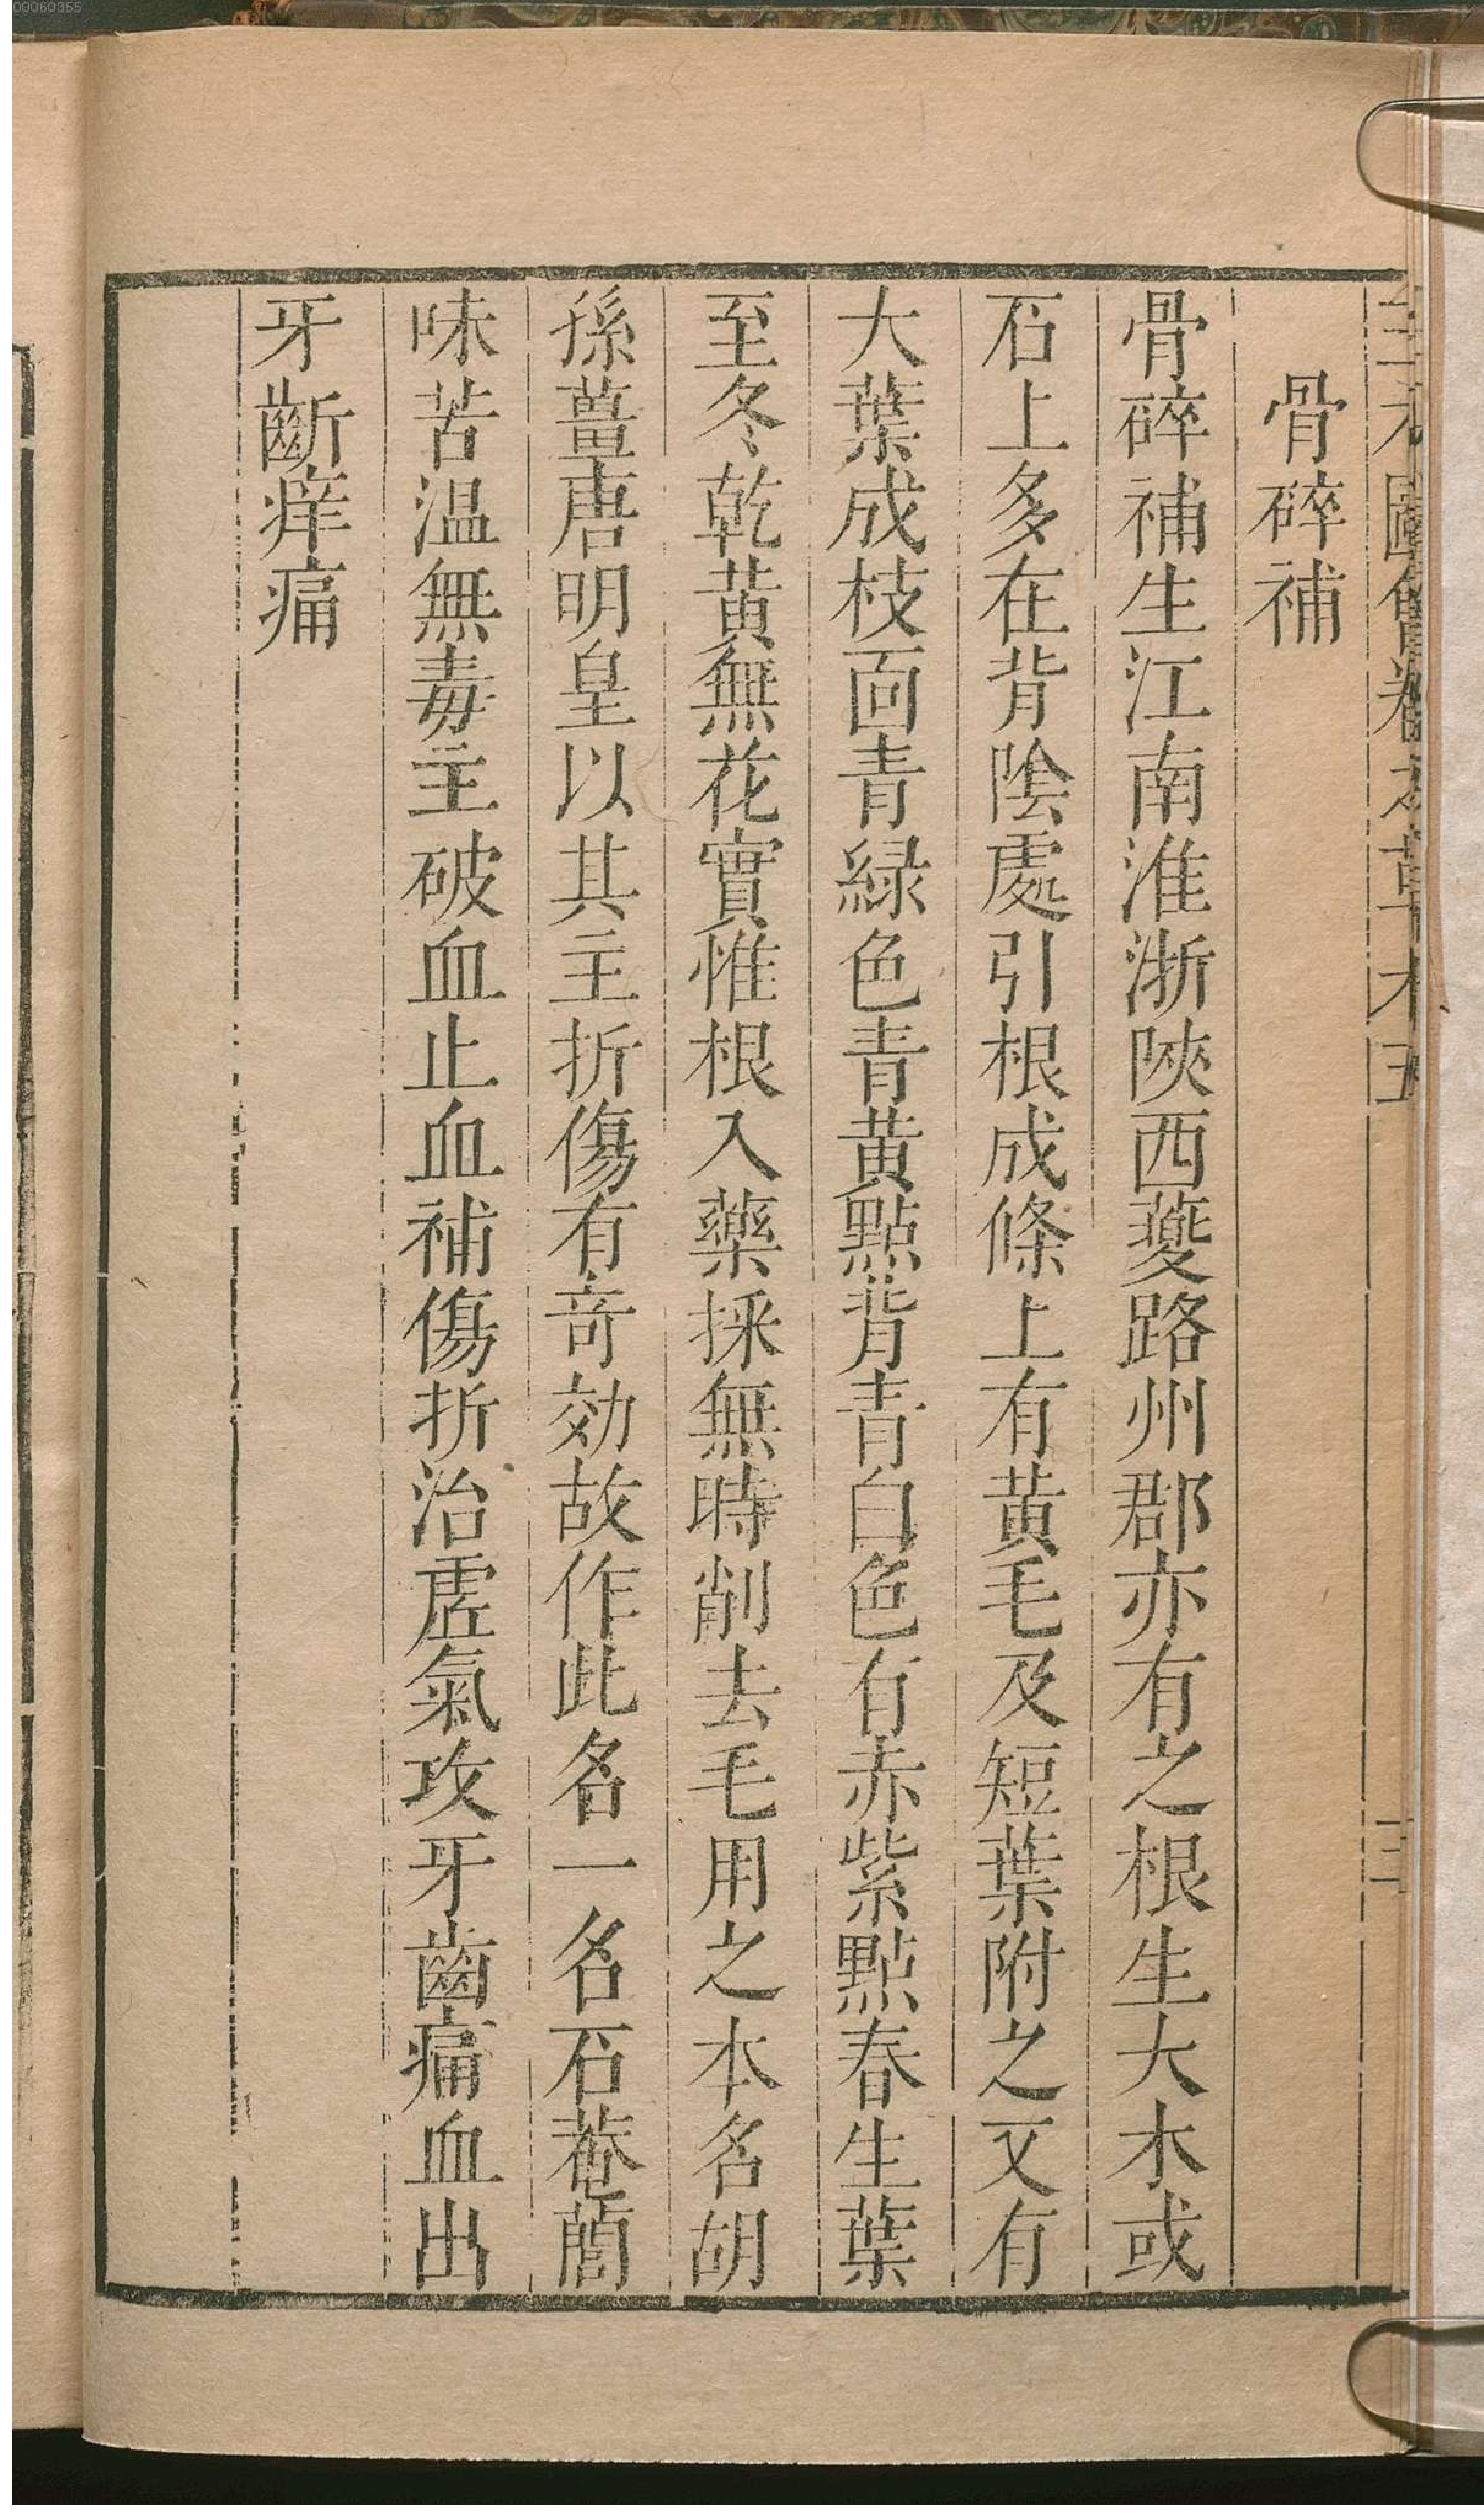 三才圖會卷 草木五
三
骨碎補
骨碎補生江南淮浙陝西夔路州郡亦有之根生大木或
石上多在背陰處引根成條上有黃毛及短葉附之又有
大葉成枝面青緑色青黃點背青白色有赤紫點春生葉
至冬乾黃無花實惟根入藥採無時削去毛用之本名胡
孫薑唐明皇以其主折傷有竒効故作此名一名石菴䕡
味苦温無毒主破血止血補傷折治虗氣攻牙齒痛血出
牙齗痒痛
00060355